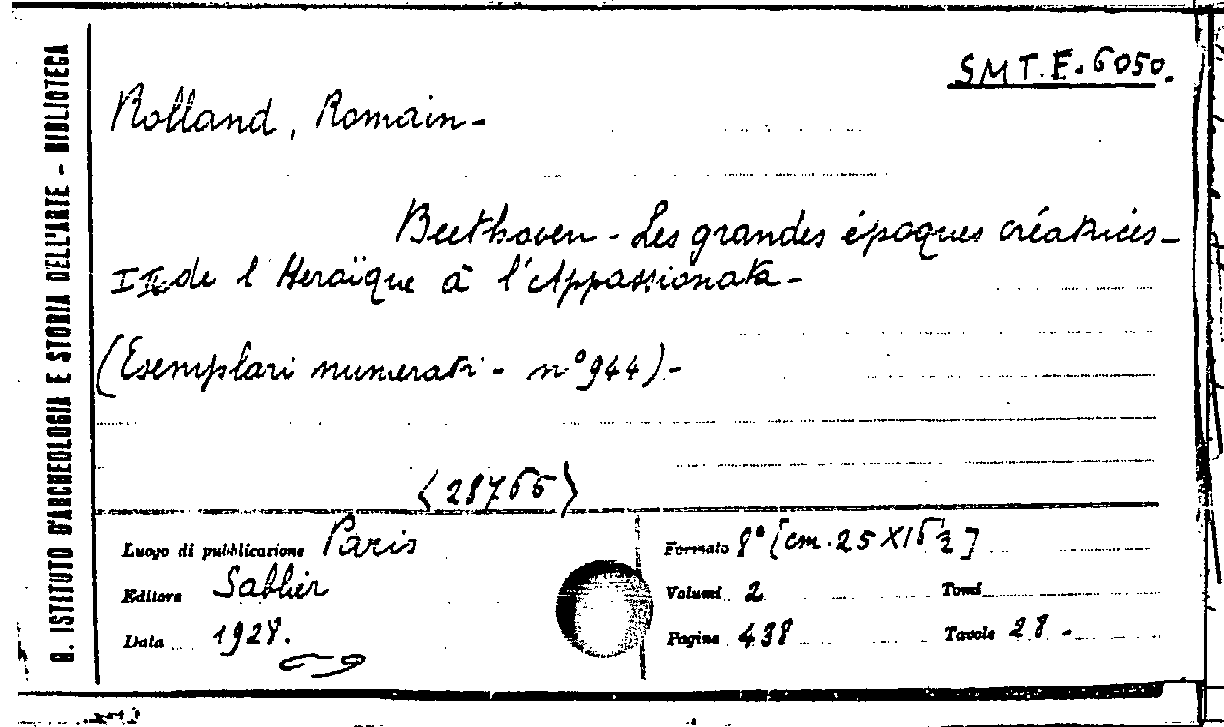 R. ISTITUTO D'ARCHEOLOGIA E STORIA DELL'ARTE - BIBLIOTECA
SMT.E.6050.
Rolland, Romain-
Beethoven - Les grandes époques créatrices-
I II de l'Heroïque à l'Appassionata-
(Esemplari numerati - n°944)-
Luogo di pubblicazione Paris
Editore Sablier
Data 1928.
Formato 8° [cm. 25 X
Volumi 2 Tomi
Pagine 438 Tavole 28-